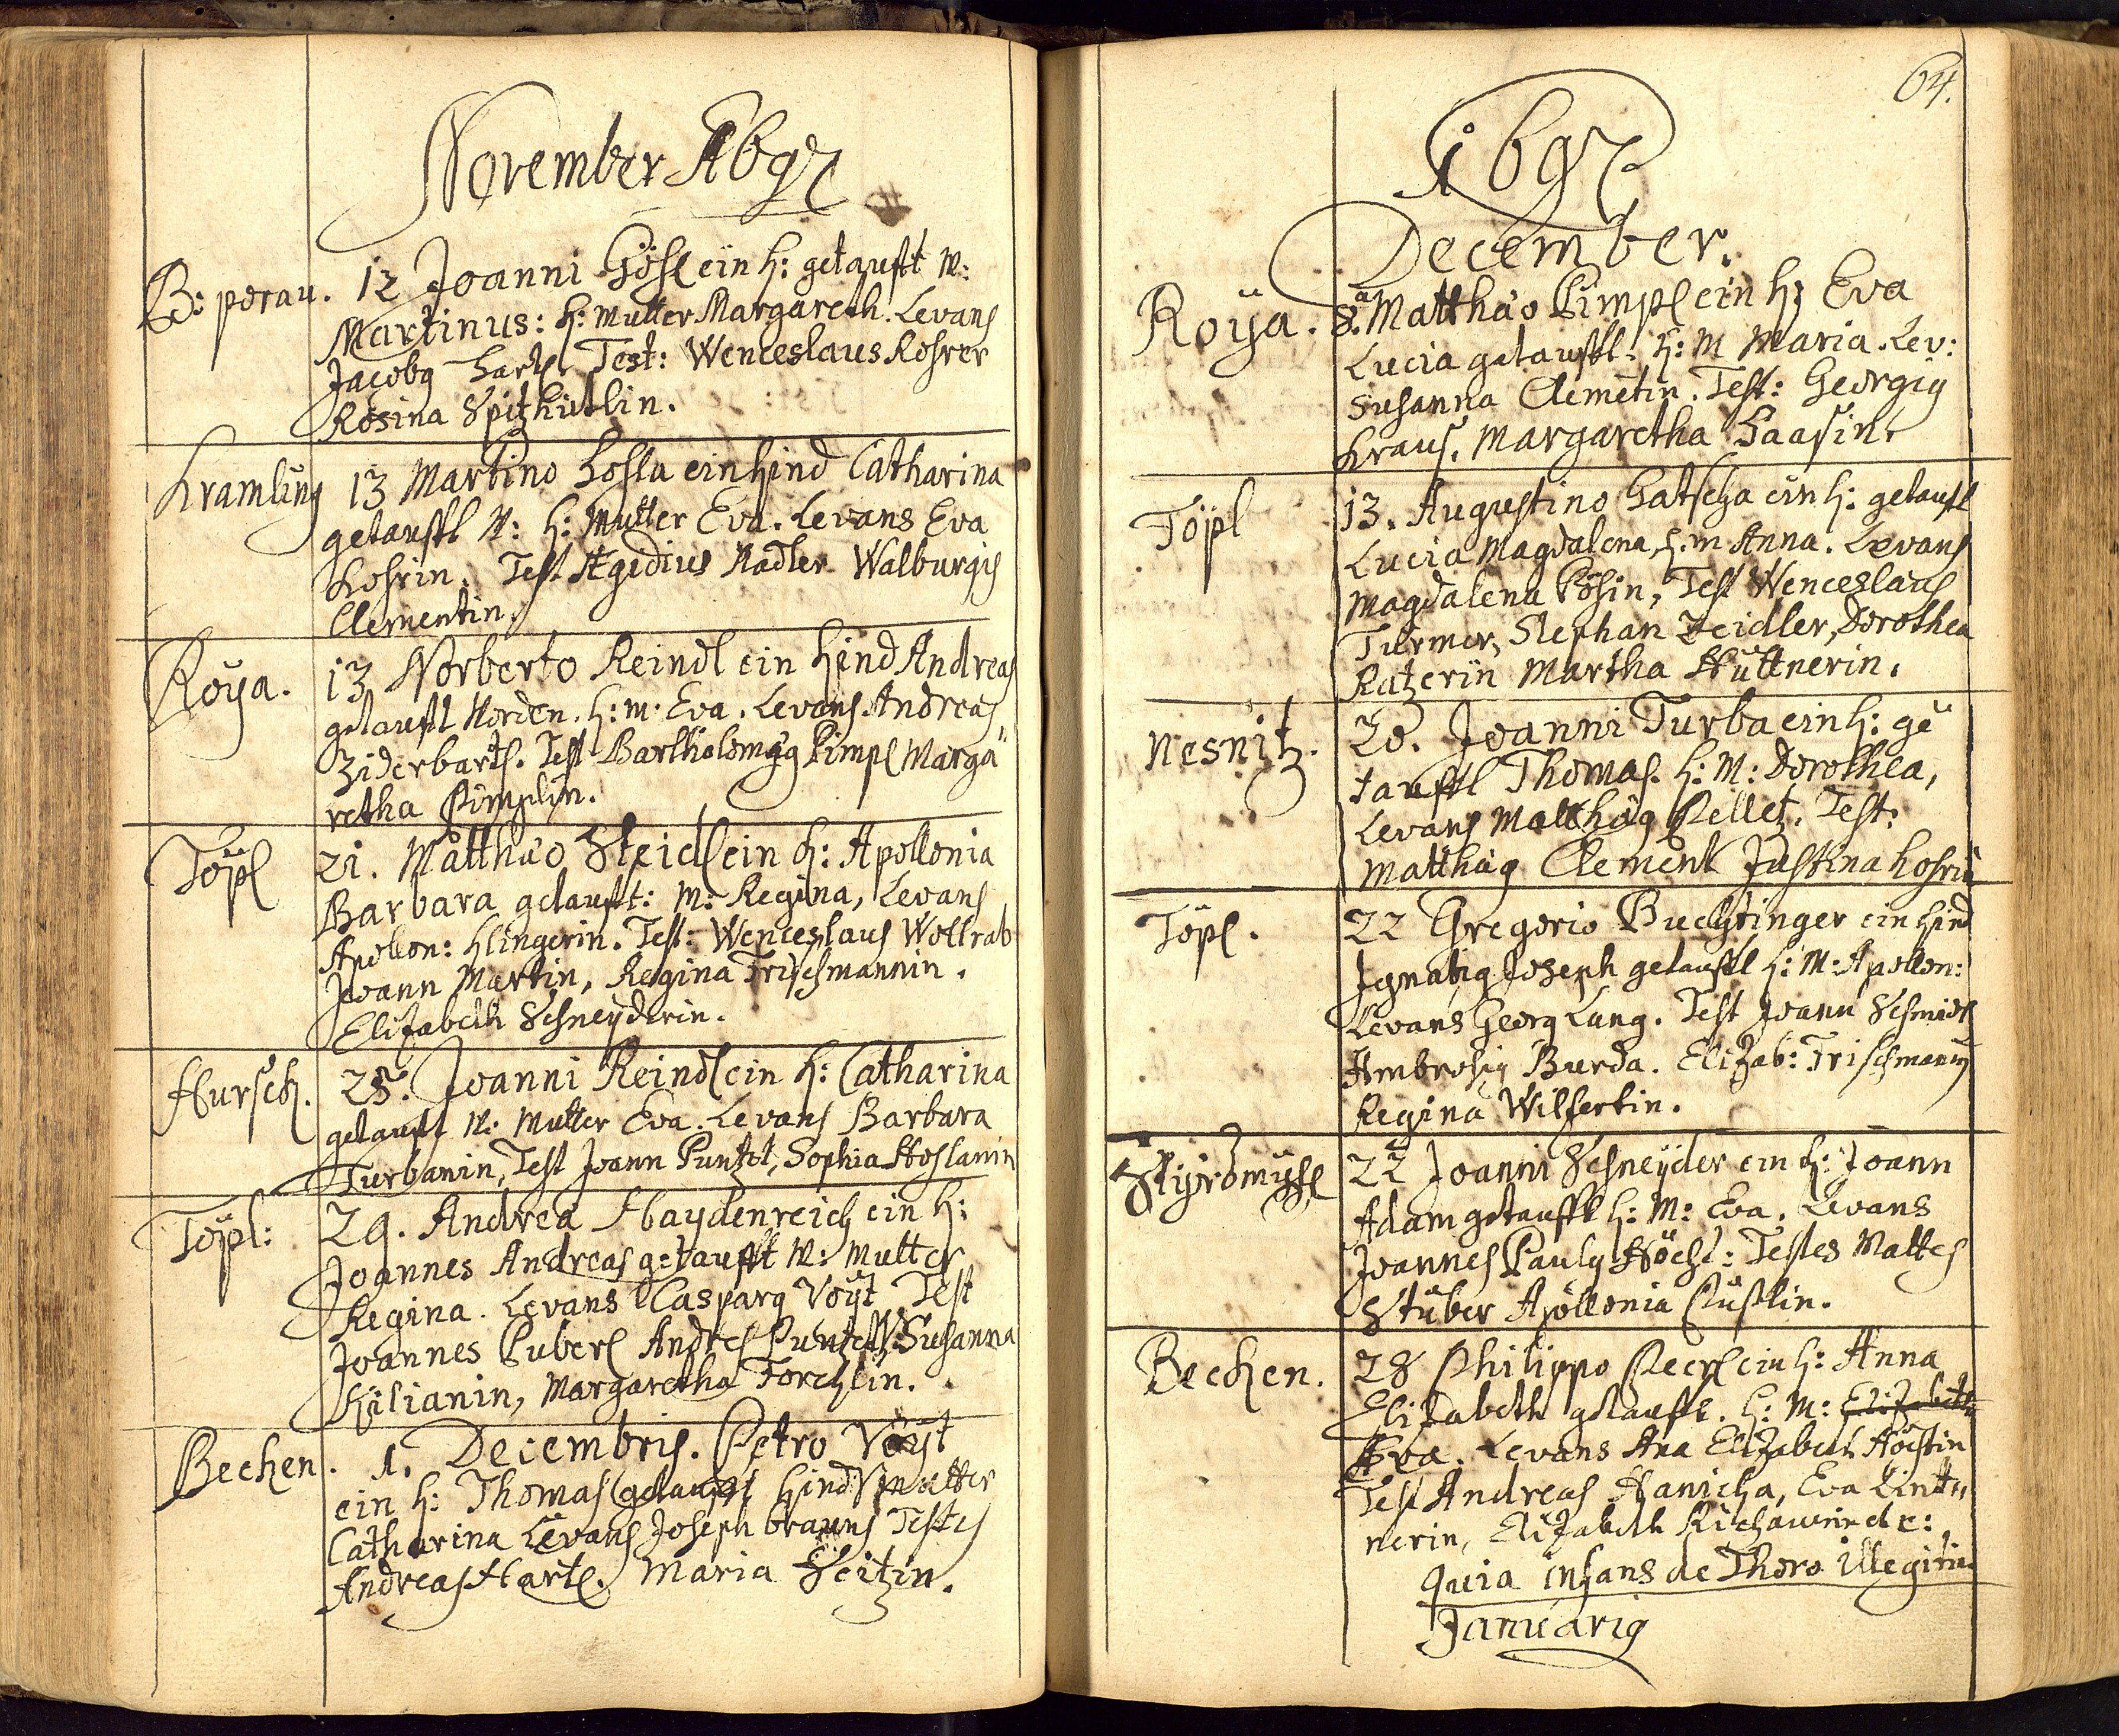 November 1692
B: porau. 12 Joanni Göhl ein K: getaufft W:
Martinus: K: Mutter Margareth. Levans
Jacobg Hartl. Test: Wenceslaus Rohrer
Rosina Spitzhütlin.
Kramling 13 Martino Kohla ein Kind Catharina
getaufft W: K: Mutter Eva. Levans Eva
Kohrin. Test Ægidius Radler Walburgis
Clementin.
Roÿa. 13 Norberto Reindl ein Kind Andreas
getaufft Worden. K: m. Eva. Levans Andreas
Ziderbartl. Test Bartholomæg Pimpl Marga
retha Pimplin.
Töpl 21. Matthäo Steidl ein K: Apollonia
Barbara getaufft: M: Regina, Levans
Apollon: Klingerin. Test: Wenceslaus Wollrab
Joann Martin, Regina Trischmannin.
Elizabeth Schneÿderin.
Hurschk. 28. Joanni Reindl ein K: Catharina
getaufft W: Mutter Eva. Levans Barbara
Turbanin, Test Joann Puntzet, Sophia Hoslanin
Töpl: 29. Andrea Haydenreich ein K:
Joannes Andreas getaufft W: Mutter
Regina. Levans Casparg Voÿt Test
Joannes Puberl Andres Susanna
Kilianin, Margaretha Forchlin.
Bechen. 1. Decembris. Petro Voÿt
ein K: Thomas getaufft Kinds Mutter
Catharina Levans Joseph brauns Testes
Andreas Hartl. Maria Seitzin.
64.
1692
December.
Roÿa. 8. Matthäo Pimpl ein K: Eva
Lucia getaufft. K: M Maria. Lev:
Susanna Clemetin. Test: Georgig
Kraus. Margaretha Haasin.
Töpl 13. Augustino Hatscha ein K: getaufft
Lucia Magdalena, K. m Anna. Levans
Magdalena Pösin, Test Wenceslaus
Turmer, Stephan Zeidler, Dorothea
Ratzerin Martha Hüttnerin.
Nesnitz. 20. Joanni Turba ein K: ge
taufft Thomas. K: M: Dorothea,
Levans Matthäg Pelletz. Test:
Matthäg Clement Justina Kohrin
Töpl. 22 Gregorio Buechtinger ein Kind
Ignatig Joseph getaufft K: M: Apollon:
Levans Georg Lang. Test Joann Schmidt
Ambrosig Burda. Elizab: Trischmanin
Regina Wilfertin.
22 Joanni Schneÿder ein K: Joann
Adam getaufft K: M: Eva. Levans
Joannes Paulg Höchl: Testes Mattes
Stuber Apollonia
Bechen. 28 Philippo Peerl ein K: Anna
Elizabeth getaufft. K: M: Elizabeth
Eva. Levans Ana Elizabeth Höchtin
Test Andreas Hanicka, Eva Lint„
nerin, Elizabeth
quia infans de Thoro illegitimo
Januarig